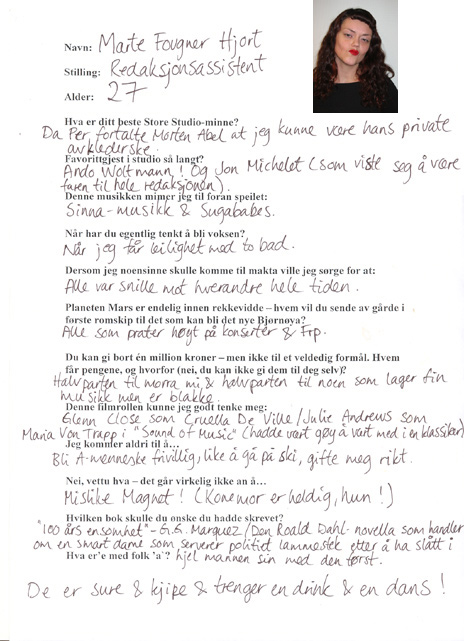 Navn: Marte Fougner Hjort
Stilling: Redaksjonsassistent
Alder: 27
Hva er ditt beste Store Studio-minne?
Da Per fortalte Morten Abel at jeg kunne være hans private
avklederske.
Favorittgjest i studio så langt?
Ando Woltmann! Og Jon Michelet (som viste seg å være
faren til hele redaksjonen).
Denne musikken mimer jeg til foran speilet:
Sinna-musikk & Sugababes.
Når har du egentlig tenkt å bli voksen?
Når jeg får leilighet med to bad.
Dersom jeg noensinne skulle komme til makta ville jeg sørge for at:
Alle var snille mot hverandre hele tiden.
Planeten Mars er endelig innen rekkevidde – hvem vil du sende av gårde i
første romskip til det som kan bli det nye Bjørnøya?
Alle som prater høyt på konserter & Frp.
Du kan gi bort én million kroner – men ikke til et veldedig formål. Hvem
får pengene, og hvorfor (nei, du kan ikke gi dem til deg selv)?
Halvparten til morra mi, & halvparten til noen som lager fin
musikk men er blakke.
Denne filmrollen kunne jeg godt tenke meg:
Glenn Close som Cruella De Ville / Julie Andrews som
Maria Von Trapp i "Sound of Music" (hadde vært gøy å vært med i en klassiker)
Jeg kommer aldri til å…
Bli A-menneske frivillig, like å gå på ski, gifte meg rikt.
Nei, vettu hva – det går virkelig ikke an å…
Mislike Magnet! (Konemor er heldig, hun!)
Hvilken bok skulle du ønske du hadde skrevet?
"100 års ensomhet" - G.G. Marquez / Den Roald Dahl-novella som handler
om en smart dame som serverer politiet lammestek etter å ha slått i
hjel mannen sin med den først.
Hva er'e med folk 'a'?
De er sure & kjipe & trenger en drink & en dans!